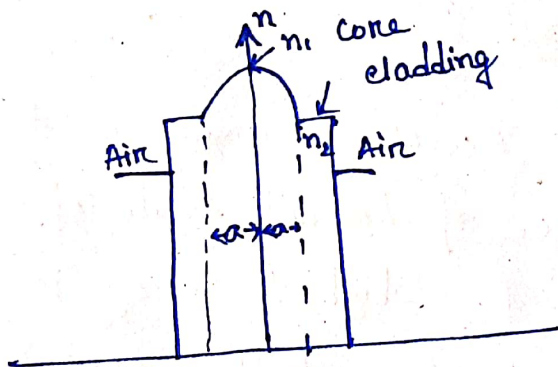 n
n₁ core
cladding
Air
n₂
Air
a
a